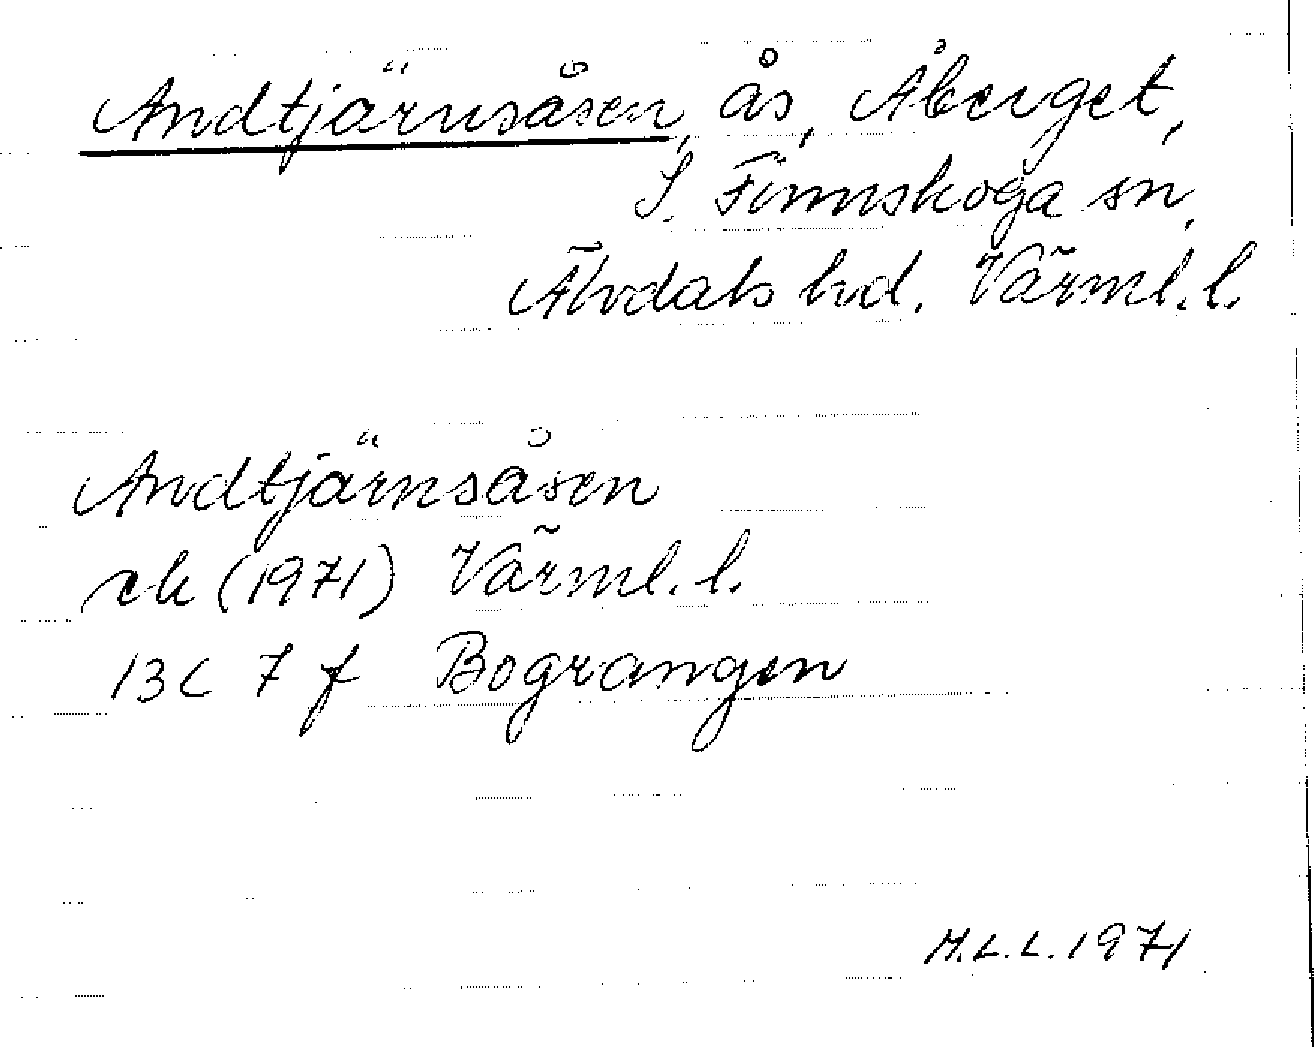 Andtjärnsåsen, ås, Åberget,
S. Finnskoga sn,
Älvdals hd. Värml. l.
Andtjärnsåsen
rek (1971) Värml. l.
13C 7 f Bograngen
M.L.L. 1971